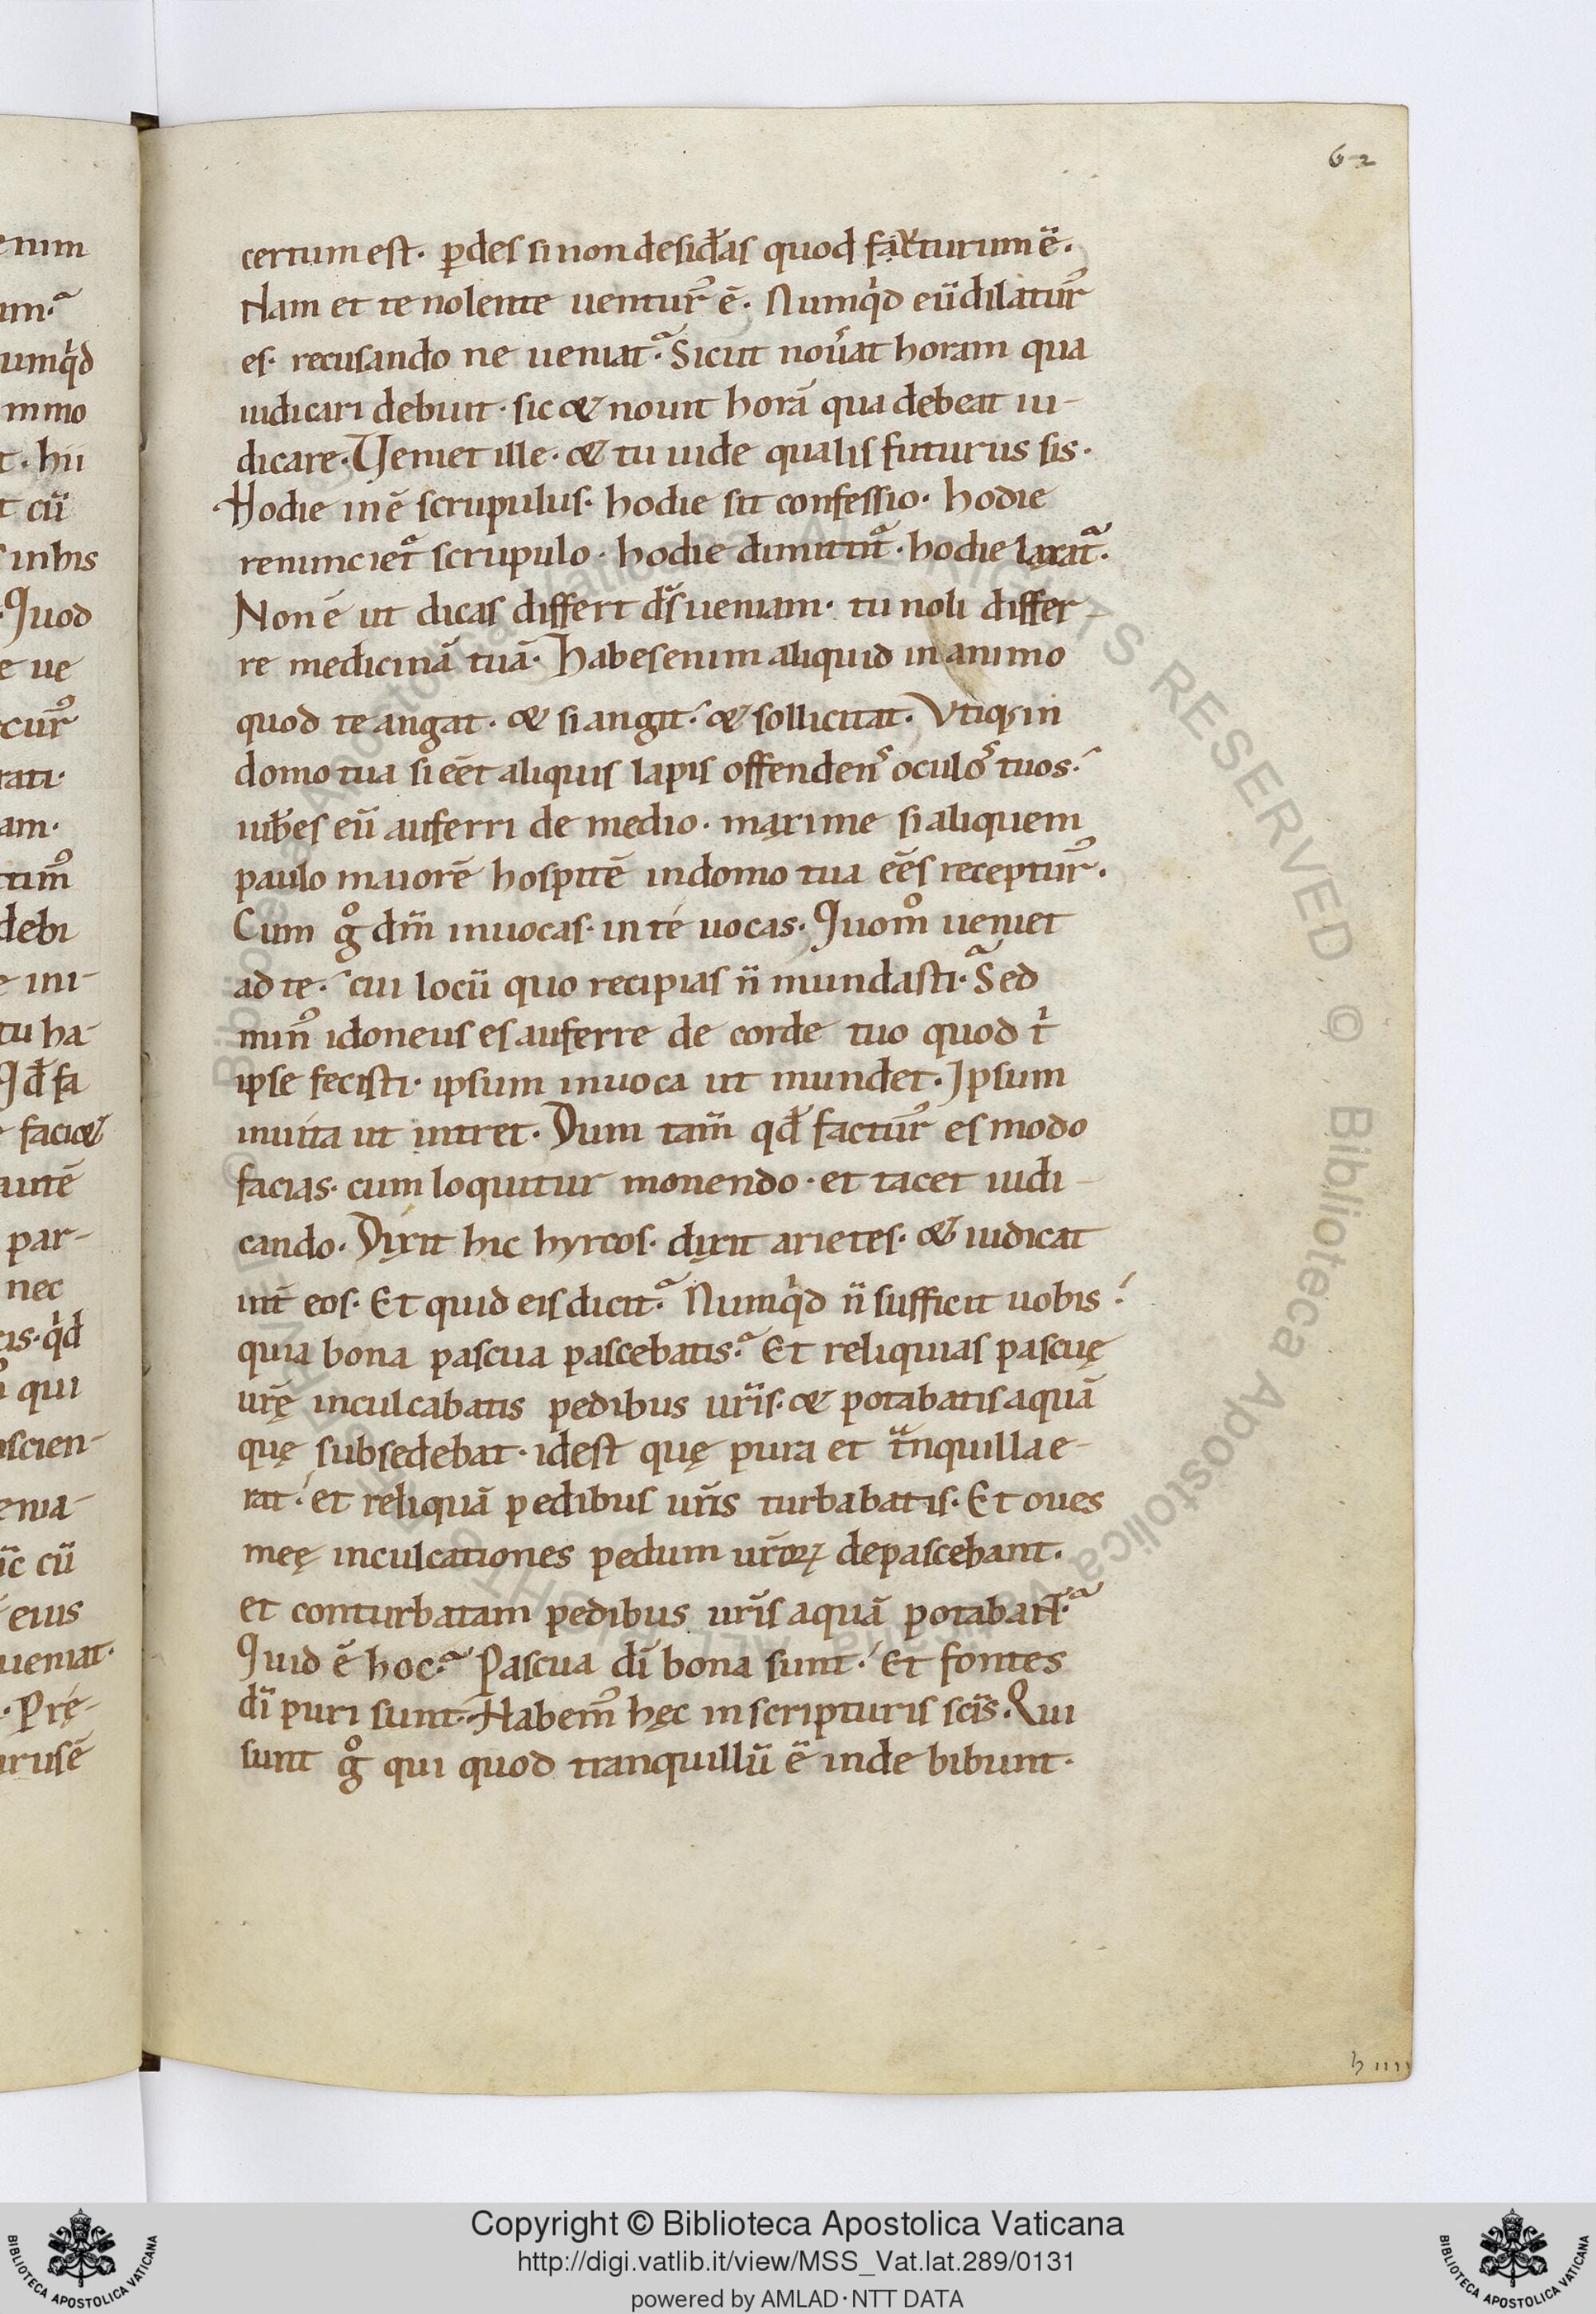 62
certum est. ꝑdes si non desid̄as quod facturum ē.
Nam et te nolente uentur᷒ ē. Numqͥd eū dilatur᷒
es. recusando ne ueniat. Sicut nou̓at horam qua
iudicari debuit. sic & nouit horā qua debeat iu-
dicare. Ueniet ille. & tu uide qualis futurus sis.
Hodie in ē scrupulus. hodie sit confessio. hodie
renuncietͣ scrupulo. hodie dimittitͣ. hodie laxatͣ.
Non ē ut dicas differt d̄s ueniam. tu noli differ-
re medicinā tuā. Habes enim aliquid in animo
quod te angat. & si angit. & sollicitat. Vtiqꝫ in
domo tua si eēt aliquis lapis offendens oculos tuos.
iub̄es eū auferri de medio. maxime si aliquem
paulo maiorē hospitē in domo tua eēs receptur᷒.
Cum gͦ dm̄ inuocas. in te uocas. Quomͦ ueniet
ad te. cui locū quo recipias n̄ mundasti. Sed
min᷒ idoneus es auferre de corde tuo quod tͥ
ipse fecisti. ipsum inuoca ut mundet. Ipsum
inuita ut intret. Dum tam̄ qd̄ factur᷒ es modo
facias. cum loquitur monendo. et tacet iudi-
cando. Dixit hic hyrcos. dixit arietes. & iudicat
int̄ eos. Et quid eis dicit. Numqͥd n̄ sufficit uobis
quia bona pascua pascebatis. Et reliquias pascuę
ur̄ę inculcabatis pedibus ur̄is. & potabatis aquā
quę subsedebat. id est quę pura et tͣnquilla e-
rat. et reliquā pedibus ur̄is turbabatis. Et oues
meę inculcationes pedum ur̄oꝝ depascebant.
et conturbatam pedibus ur̄is aquā potabant.
Quid ē hoc. Pascua dī bona sunt. Et fontes
dī puri sunt. Habem᷒ hęc in scripturis scīs. Qui
sunt gͦ qui quod tranquillū ē inde bibunt.
h iiii
Copyright © Biblioteca Apostolica Vaticana
http://digi.vatlib.it/view/MSS_Vat.lat.289/0131
powered by AMLAD·NTT DATA